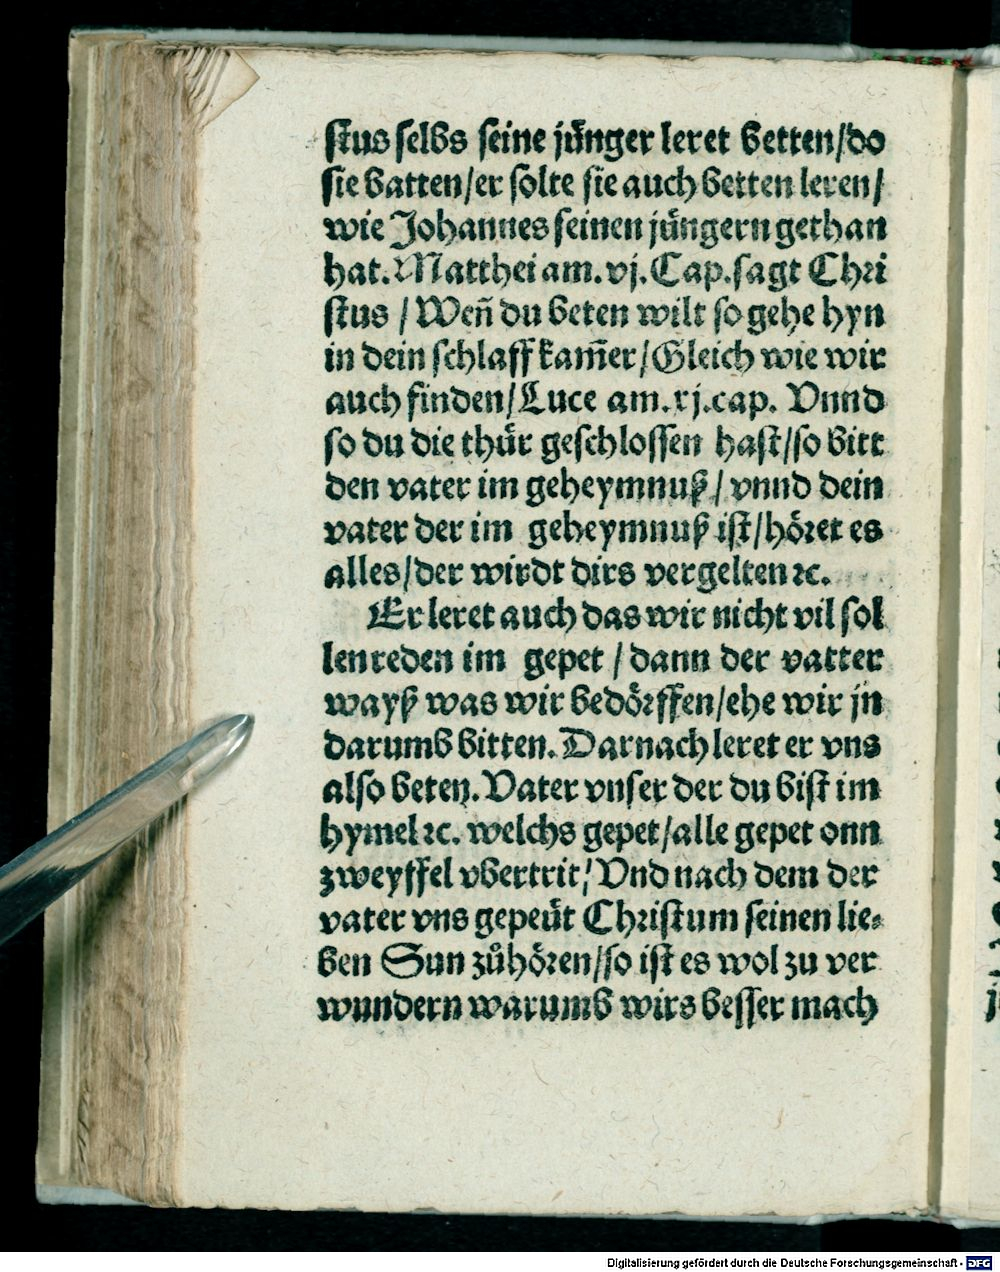 stus selbs seine jünger leret betten/do
sie batten/er solte sie auch betten leren/
wie Johannes seinen jüngern gethan
hat. Matthei am. vj. Cap. sagt Chri
stus / Weñ du beten wilt so gehe hyn
in dein schlaff kam̃er/Gleich wie wir
auch finden/Luce am. xj. cap. Vnnd
so du die thür geschlossen hast/so bitt
den vater im geheymnuß/ vnnd dein
vater der im geheymnuß ist/höret es
alles/der wirdt dirs vergelten ꝛc.
Er leret auch das wir nicht vil sol
len reden im gepet / dann der vatter
wayß was wir bedörffen/ehe wir jn
darumb bitten. Darnach leret er vns
also beten. Vater vnser der du bist im
hymel ꝛc. welchs gepet/alle gepet onn
zweyffel vbertrit/ Vnd nach dem der
vater vns gepeüt Christum seinen lie⸗
ben Sun zůhören/so ist es wol zu ver
wundern warumb wirs besser mach
Digitalisierung gefördert durch die Deutsche Forschungsgemeinschaft - DFG